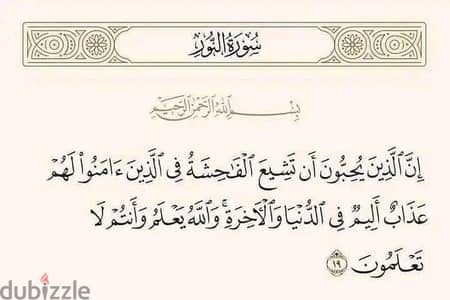 سُورَةُ النُّورِ
بِسْمِ اللَّهِ الرَّحْمَٰنِ الرَّحِيمِ
إِنَّ ٱلَّذِينَ يُحِبُّونَ أَن تَشِيعَ ٱلْفَٰحِشَةُ فِى ٱلَّذِينَ ءَامَنُوا۟ لَهُمْ
عَذَابٌ أَلِيمٌ فِى ٱلدُّنْيَا وَٱلْءَاخِرَةِ ۚ وَٱللَّهُ يَعْلَمُ وَأَنتُمْ لَا
تَعْلَمُونَ ١٩
dubizzle